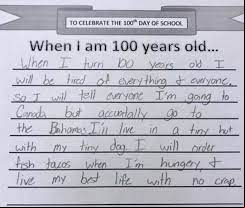 TO CELEBRATE THE 100th DAY OF SCHOOL
When I am 100 years old...
When I turn 100 years old I
will be tired of everything & everyone,
so I will tell everyone I'm going to
Canada but accidentally go to
the Bahamas. I'll live in a tiny hut
with my tiny dog. I will order
fish tacos when I'm hungery &
live my best life with no crap.